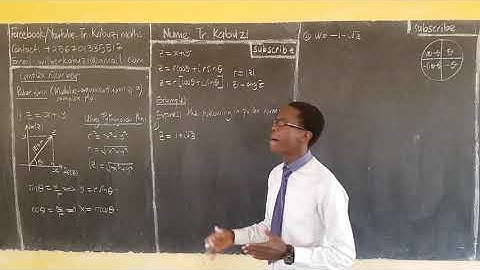 Facebook/Youtube: Tr. Kabuzi maths
Contact: +256701335517
Complex numbers
Polar form (Modulus-argument form) of a
complex No.
Z = x+iy
Using Pythagoras
r² = x²+y²
r = √x²+y²
|z| = √x²+y²
sinθ = y/r ⇒ y = r sinθ
cosθ = x/r ⇒ x = r cosθ
Name: Tr. Kabuzi
subscribe
Z = x+iy
Z = rcosθ + i rsinθ
Z = r[cosθ + isinθ]
r = |z|
Example
Express the following in Polar form
Z = 1+i√3
W = -1-i√3
subscribe
θ
-θ